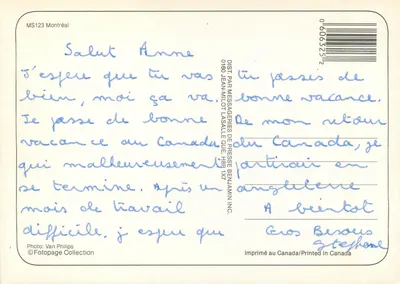 MS123 Montréal
Salut Anne
J'espere que tu vas
bien, moi ça va.
Je passe de bonne
vacance au Canada
qui malheureusement
se termine. Après un
mois de travail
difficile. j'espere que
Photo: Van Phillips
©Fotopage Collection
DIST. PAR MESSAGERIES DE PRESSE BENJAMIN INC.
0160 JEAN MILOT LASALLE QUE. H8R 1X7
tu passes de
bonne vacance.
De mon retour
du Canada, je
partirais en
angleterre
A bientôt
Gros Bisous
Stephane
Imprimé au Canada/Printed in Canada